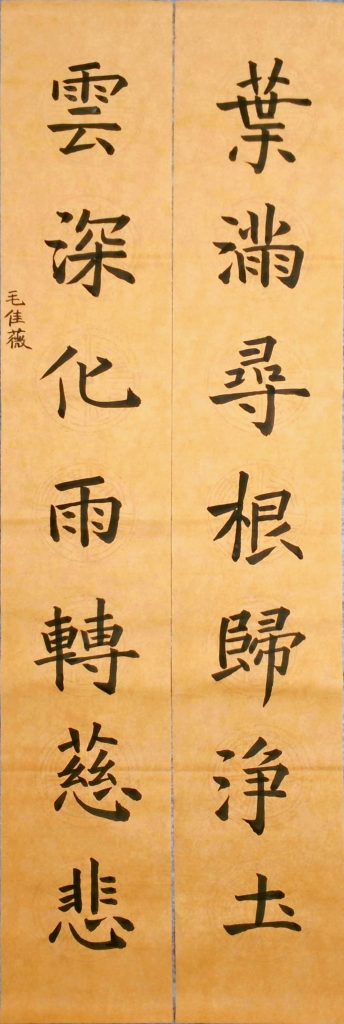 葉滿尋根歸淨土
雲深化雨轉慈悲
毛佳薇